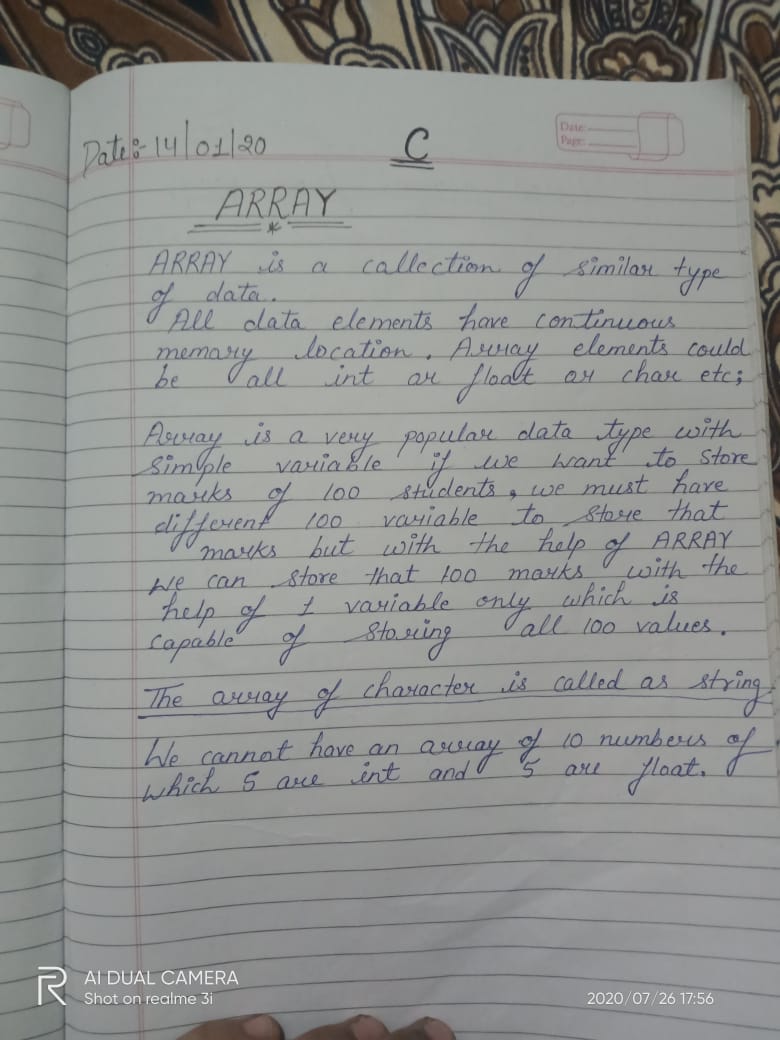 Date:- 14/01/20
C
Date:
Page:
ARRAY
ARRAY is a collection of similar type
of data.
All data elements have continuous
memory location. Array elements could
be all int or float or char etc;
Array is a very popular data type with
simple variable if we want to store
marks of 100 students, we must have
different 100 variable to store that
marks but with the help of ARRAY
We can store that 100 marks with the
help of 1 variable only which is
capable of storing all 100 values.
The array of character is called as string
We cannot have an array of 10 numbers of
which 5 are int and 5 are float.
AI DUAL CAMERA
Shot on realme 3i
2020/07/26 17:56